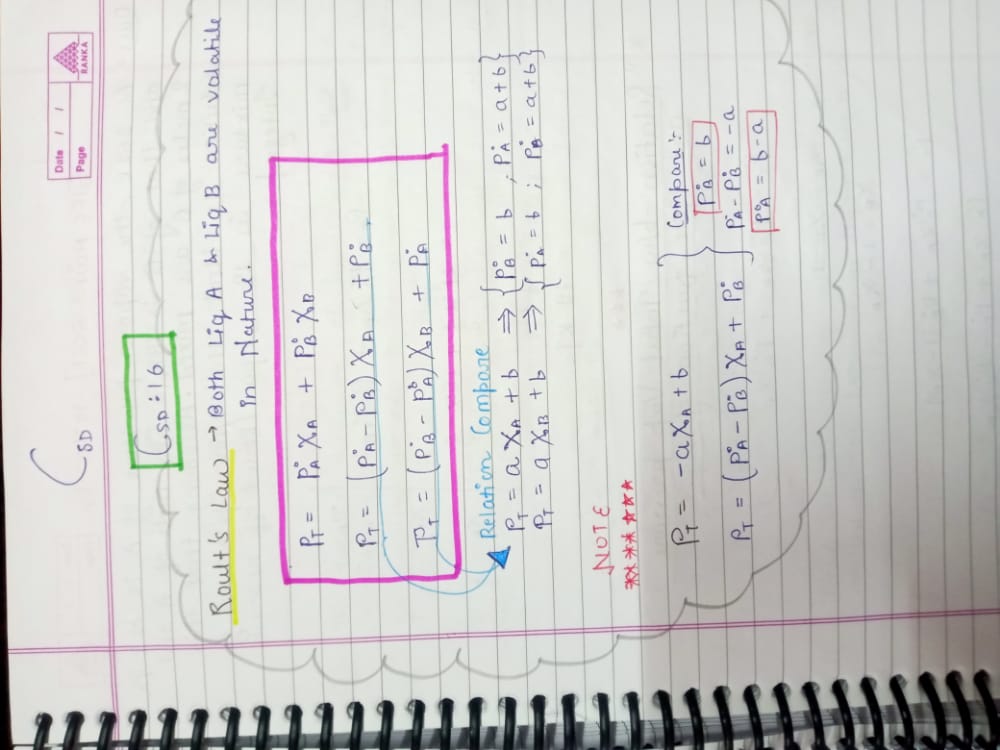 Date / /
Page
RANKA
C SD
C SD : 16
Roult's Law → Both Liq A & Liq B are volatile
in Nature.
P_T = P°_A X_A + P°_B X_B
P_T = (P°_A - P°_B) X_A + P°_B
P_T = (P°_B - P°_A) X_B + P°_A
Relation Compare
P_T = a X_A + b ⇒ {P°_B = b ; P°_A = a + b}
P_T = a X_B + b ⇒ {P°_A = b ; P°_B = a + b}
NOTE
*******
P_T = -a X_A + b
P_T = (P°_A - P°_B) X_A + P°_B
Compare:-
P°_B = b
P°_A - P°_B = -a
P°_A = b - a